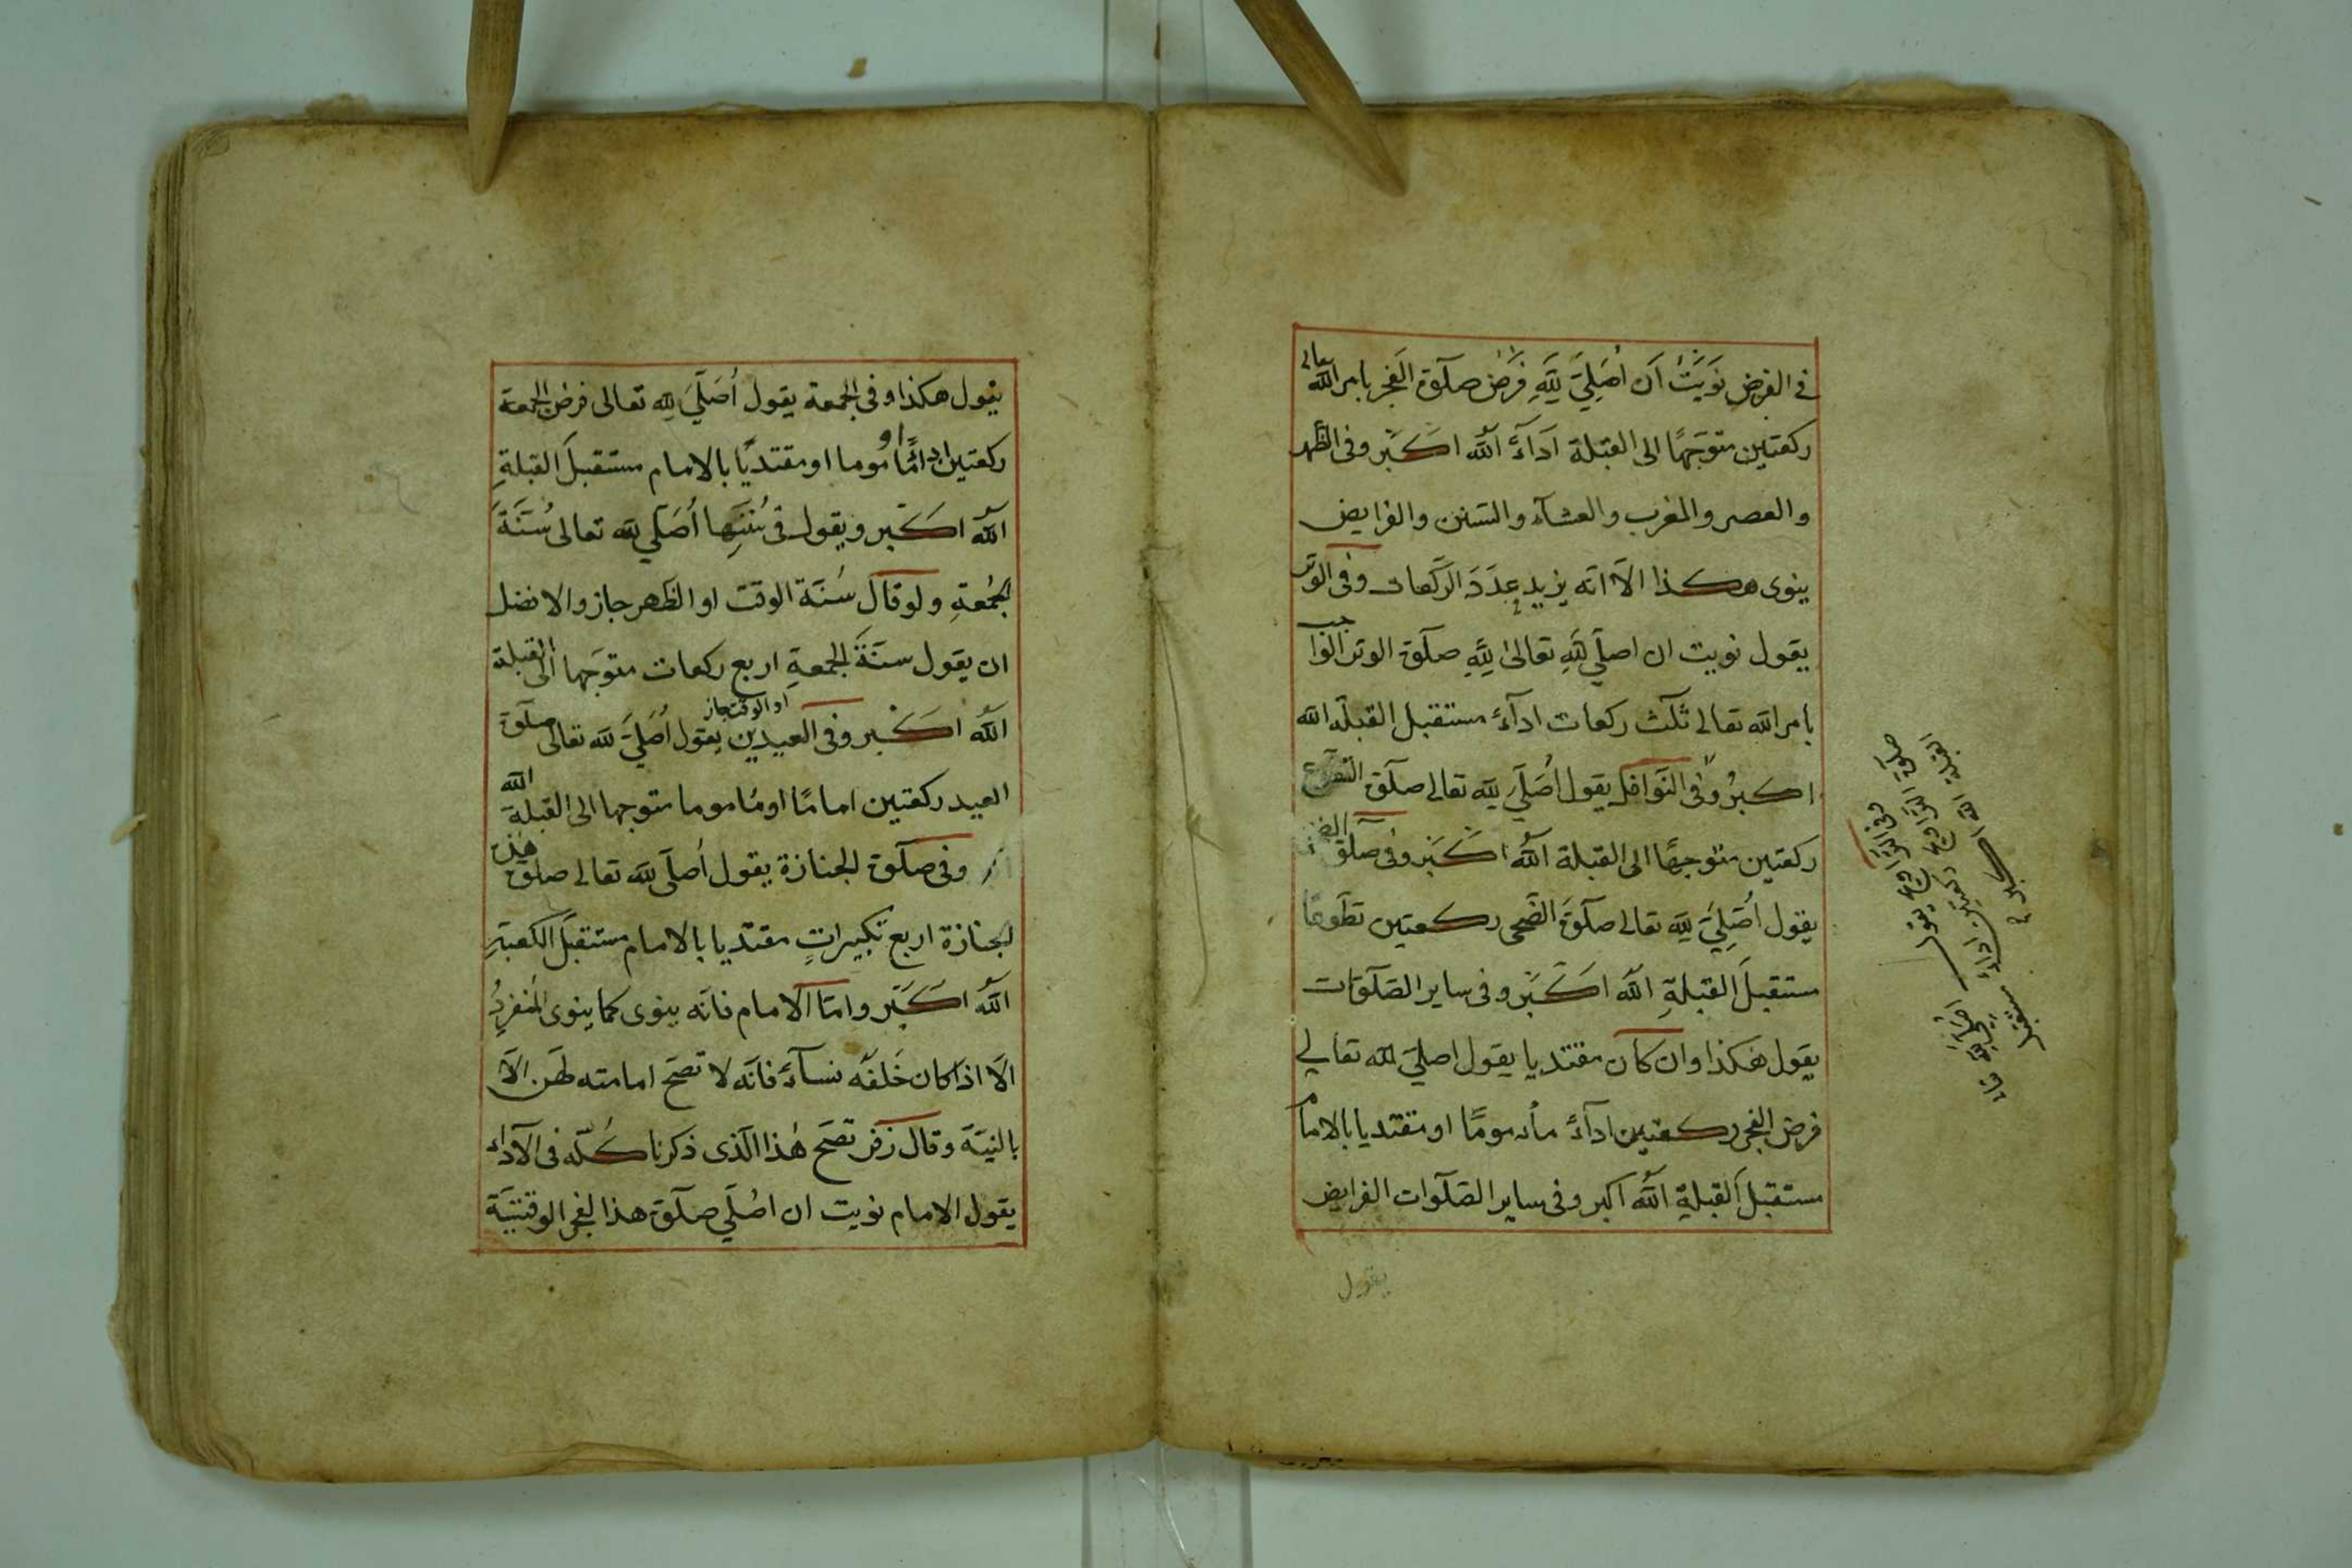 في الفرض نَوَيْتُ اَن اُصَلِّيَ لِلّٰهِ فَرْضَ صلٰوة الفَجْر بامر الله تعالى
ركعتين متوجّهًا الى القبلة اَدَآءً اللّٰهُ اكْبَر وفى الظّهر
والعصر والمغرب والعشآء والسّنن والفرايض
ينوى هكذا الّا انّه يزيد عدَدَ الرّكعات وفى الوتر
يقول نويت ان اصلّي لِلّٰهِ تعالىٰ لِلّٰهِ صلٰوة الوتر الواجب
بامر اللّٰه تعالى ثلٰث ركعات ادآءً مستقبل القبلة اللّٰه
اكبرُ وفى النّوافل يقول اُصَلّيَ لِلّٰه تعالى صلٰوة التطوع
ركعتين متوجهًا الى القبلة اللّٰهُ اكْبَر وفى صلٰوة
يقول اُصَلِّيَ لِلّٰه تعالى صلٰوةَ الضّحى ركعتين تطوعًا
مستقبلَ القبلةِ اللّٰه اكْبَر وفى ساير الصّلٰوات
يقول هكذا وان كان مقتديا يقول اصلّيَ للّٰه تعالى
فرض الفجر ركعتين ادآءً مأمومًا او مقتديا بالامام
مستقبلَ القبلةِ اللّٰهُ اكبر وفى ساير الصّلٰوات الفرايض
يقول
وفى التراويح يقول اصلّى
صلٰوة التراويح ركعتين اداءً مستقبل
القبلة اللّٰه اكبر
يقول هكذا وفى الجمعة يقول اُصَلّيَ لِلّٰه تعالى فرض الجمعة
ركعتين امامًا او موما او مقتديًا بالامام مستقبلَ القبلةِ
اللّٰهُ اكْبَر ويقول فى سُنَنِها اُصَلّي للّٰه تعالى سُنّةَ
الجُمعةِ ولو قال سُنّة الوقت او الظّهر جاز والافضل
ان يقول سنّةَ الجمعةِ اربع ركعات متوجّها الى القبلة
او الوقت جاز
اللّٰهُ اكْبَر وفى العيدين يقول اُصَلّيَ للّٰه تعالى صلٰوة
العيد ركعتين امامًا او ماموما متوجها الى القبلة اللّٰه
وفى صلٰوة الجنازة يقول اُصلّى للّٰه تعالى صلٰوة هذه
الجنازة اربع تكبيراتٍ مقتديا بالامام مستقبلَ الكعبةِ
اللّٰهُ اكْبَر وامّا الامام فانّه ينوى كما ينوى المُنفرِدُ
الّا اذا كان خَلْفَه نسآءً فانّه لا تصحّ امامته لهَنّ الّا
بالنيّة وقال زفر تصَحّ هٰذا الّذى ذكرنا كُلّه فى الاداء
يقول الامام نويت ان اصُلّي صلٰوة هذا الفجر الوقتيّة